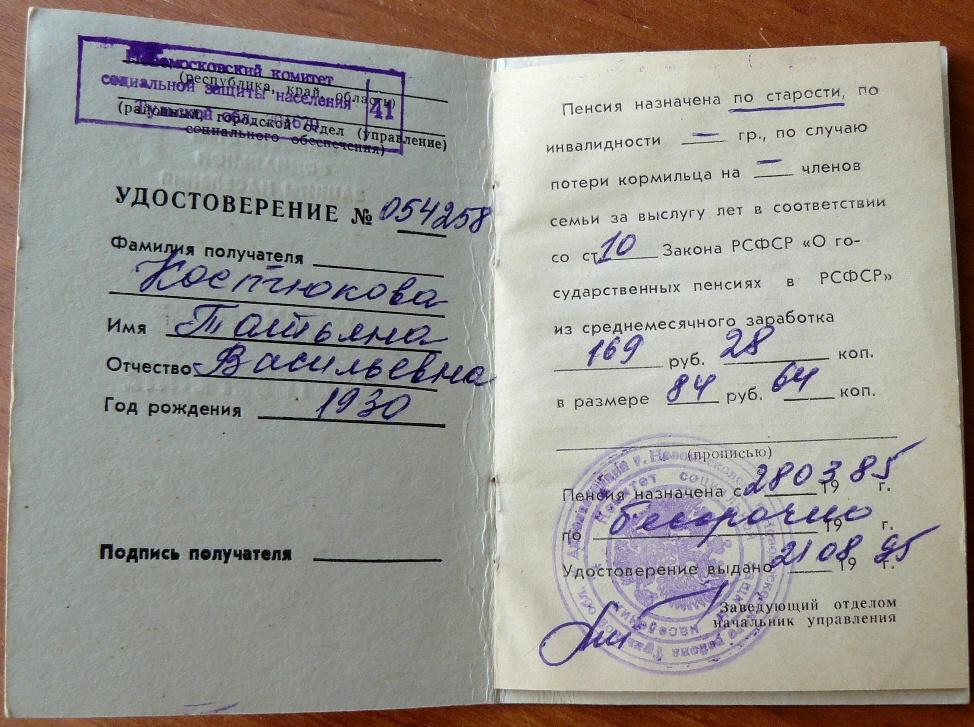 Новомосковский комитет
(республика, край, область)
социальной защиты населения
41
Тульской обл. 301670
(районный, городской отдел (управление)
социального обеспечения)
УДОСТОВЕРЕНИЕ № 054258
Фамилия получателя
Костюкова
Имя Татьяна
Отчество Васильевна
Год рождения 1930
Подпись получателя
Пенсия назначена по старости, по
инвалидности — гр., по случаю
потери кормильца на — членов
семьи за выслугу лет в соответствии
со ст. 10 Закона РСФСР «О го-
сударственных пенсиях в РСФСР»
из среднемесячного заработка
169 руб. 28 коп.
в размере 84 руб. 64 коп.
(прописью)
Пенсия назначена с 28 03 19 85 г.
по бессрочно 19 г.
Удостоверение выдано 21 08 19 95 г.
Заведующий отделом
начальник управления